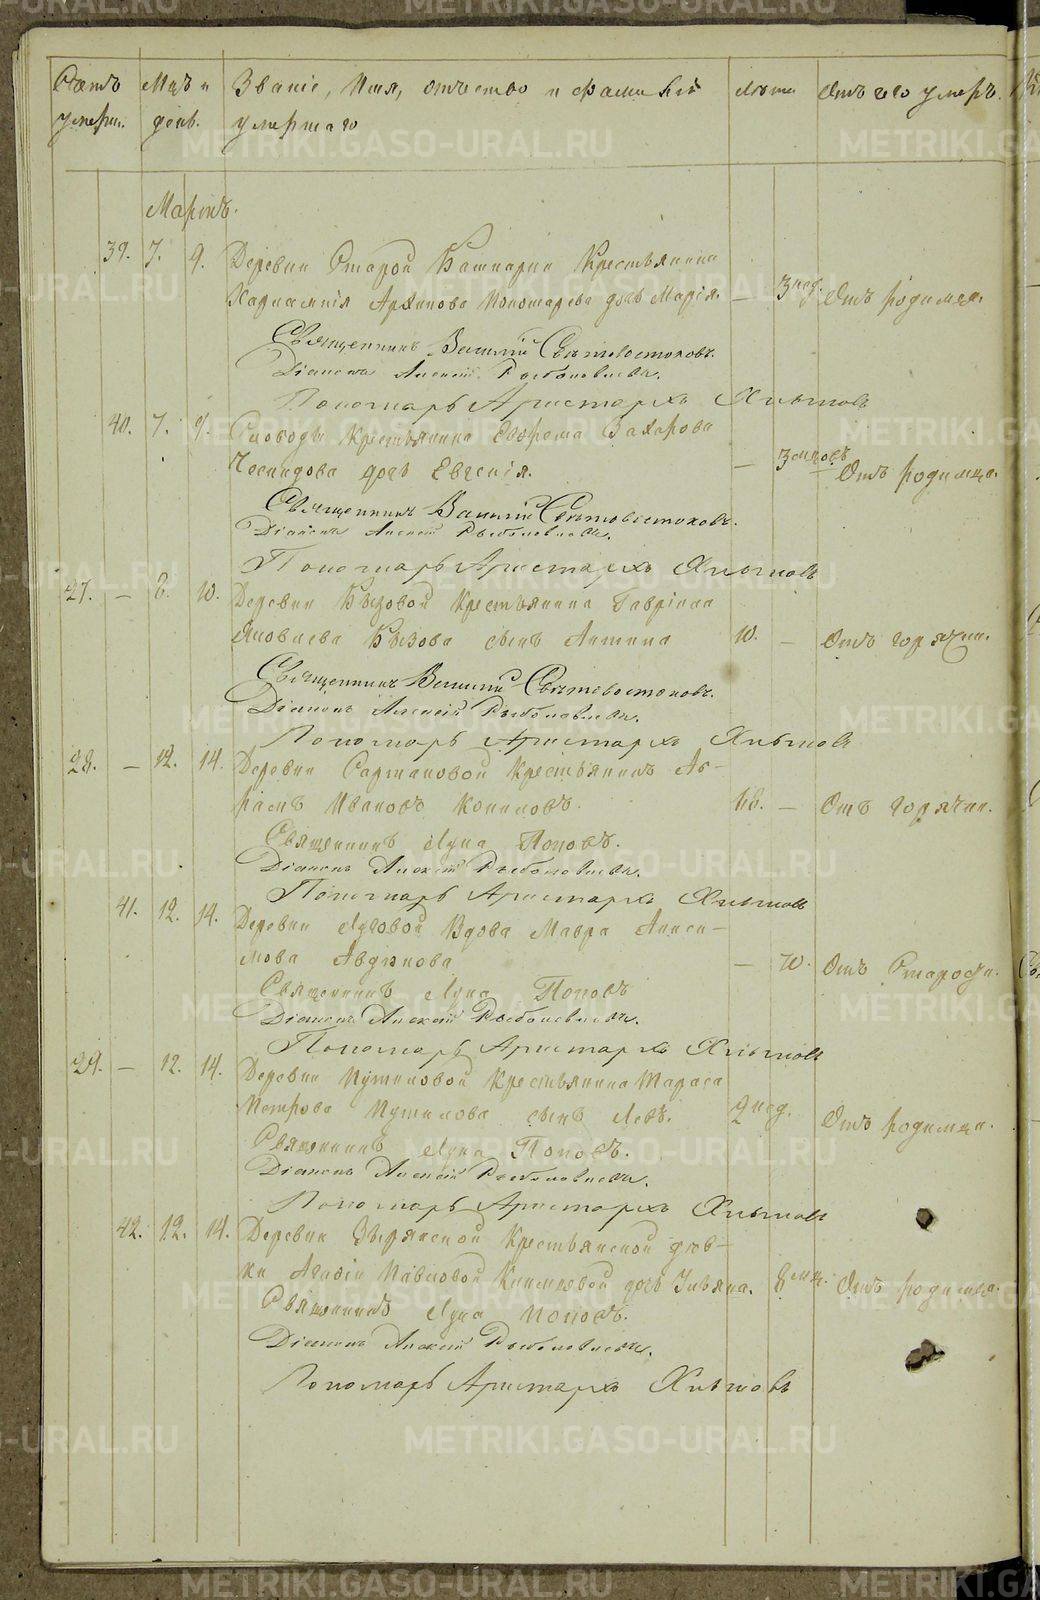 Счетъ Мцъ и Званіе, Имя, отчество и фамилія лѣта Отъ чего умеръ.
умерш. день. умершаго
Мартъ.
39. 7. 9. Деревни Старой Башкарки Крестьянина
Харлампія Архипова Пономарева дочь Марія. — 3 нед. Отъ родимца.
Священникъ Василій Свѣтовостоковъ.
Діаконъ Алексѣй
Пономарь Аристархъ Хлыновъ
40. 7. 9. Слободы Крестьянина Ефрема Захарова
дочь Евгенія. — 3 мцовъ Отъ родимца.
Священникъ Василій Свѣтовостоковъ.
Діаконъ Алексѣй
Пономарь Аристархъ Хлыновъ
27. — 8. 10. Деревни Бызовой Крестьянина Гавріила
Яковлева Бызова сынъ Антипа 10. — Отъ горячки.
Священникъ Василій Свѣтовостоковъ.
Діаконъ Алексѣй
Пономарь Аристархъ Хлыновъ
28. — 12. 14. Деревни Сартаковой Крестьянинъ Ав-
рамъ Ивановъ Копыловъ. — Отъ горячки.
Священникъ Лука Поповъ.
Діаконъ Алексѣй
Пономарь Аристархъ Хлыновъ
41. 12. 14. Деревни Луговой Вдова Мавра Алексѣ-
— 70. Отъ Старости.
Священникъ Лука Поповъ
Діаконъ Алексѣй
Пономарь Аристархъ Хлыновъ
29. — 12. 14. Деревни Путиловой Крестьянина Тараса
Петрова Путилова сынъ Левъ. 2 нед. Отъ родимца.
Священникъ Лука Поповъ.
Діаконъ Алексѣй
Пономарь Аристархъ Хлыновъ
42. 12. 14. Деревни Зырянской Крестьянской дѣв-
ки Агафіи Павловой дочь Ульяна. 8 мц. Отъ родимца.
Священникъ Лука Поповъ.
Діаконъ Алексѣй
Пономарь Аристархъ Хлыновъ
METRIKI.GASO-URAL.RU